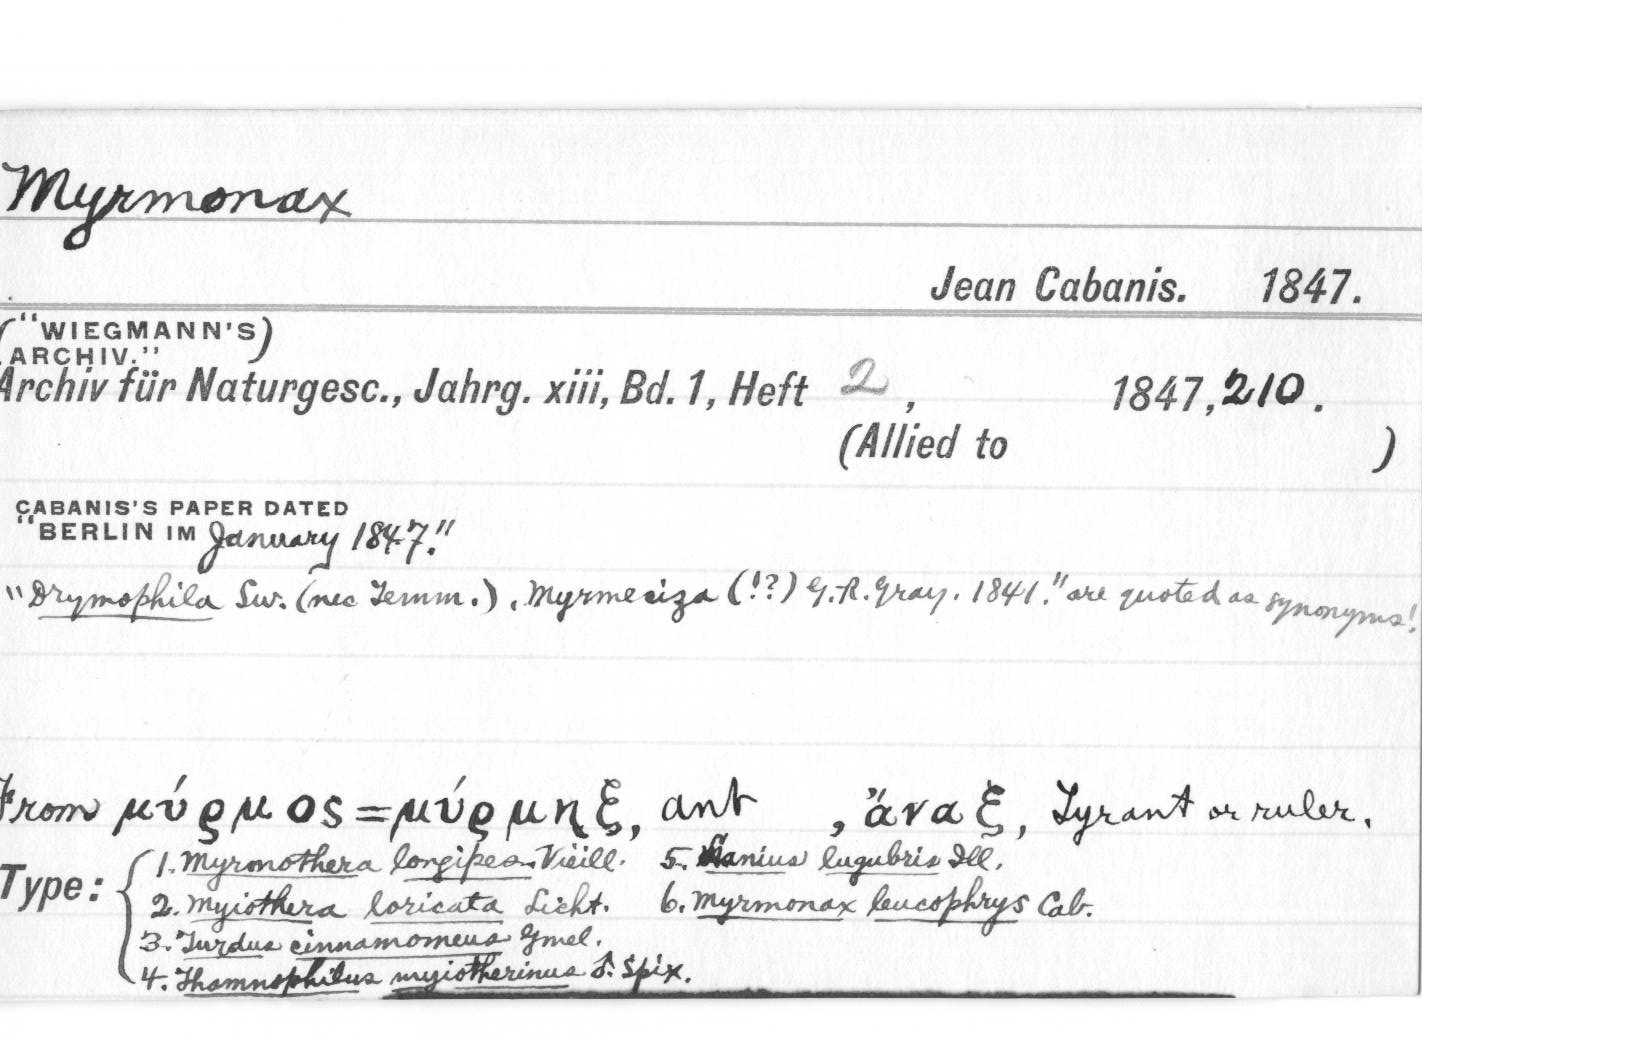 Myrmonax
Jean Cabanis. 1847.
("WIEGMANN'S)
ARCHIV."
Archiv für Naturgesc., Jahrg. xiii, Bd. 1, Heft 2, 1847, 210.
(Allied to )
CABANIS'S PAPER DATED
"BERLIN IM January 1847."
"Drymophila Sw. (nec Temm.), Myrmeciza (!?) G.R. Gray. 1841." are quoted as synonyms!
From μύρμος = μύρμηξ, ant , ἄναξ, Tyrant or ruler.
Type: 1. Myrmothera longipes Vieill. 5. Lanius lugubris Ill.
2. Myiothera loricata Licht. 6. Myrmonax leucophrys Cab.
3. Turdus cinnamomeus Gmel.
4. Thamnophilus myiotherinus Spix.